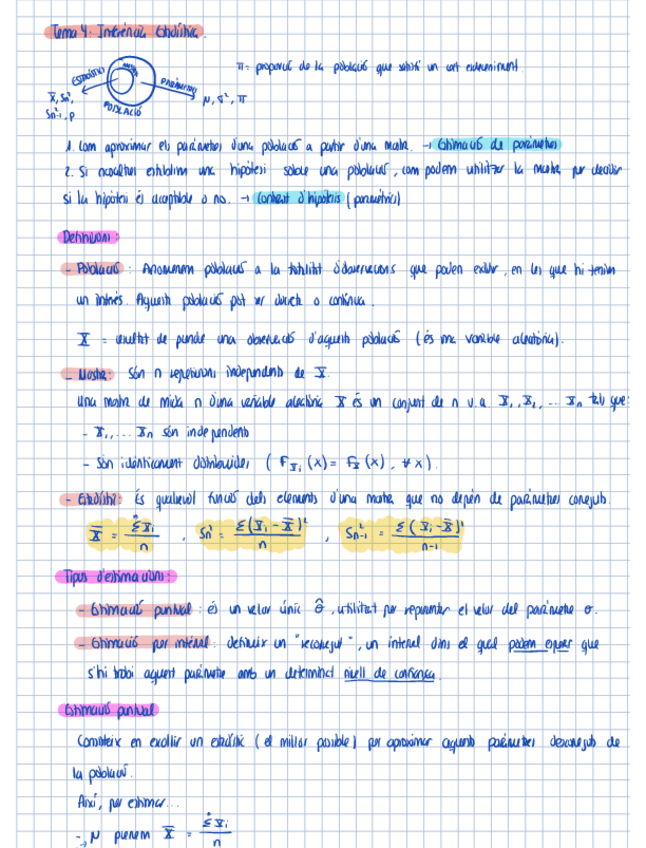 Tema 4: Inferència Estadística.
ESTADÍSTICS
MOSTRA
PARÀMETRES
POBLACIÓ
X̄, Sn²,
Sn-1², p
μ, σ², π
π: proporció de la població que satisfà un cert esdeveniment
1. Com aproximar els paràmetres d'una població a partir d'una mostra. → Estimació de paràmetres
2. Si nosaltres establim una hipòtesi sobre una població, com podem utilitzar la mostra per decidir
si la hipòtesi és acceptable o no. → Contrast d'hipòtesis (paramètrics)
Definicions:
- Població: Anomenem població a la totalitat d'observacions que poden existir, en les que hi tenim
un interès. Aquesta població pot ser discreta o contínua.
X = resultat de prendre una observació d'aquesta població (és una variable aleatòria).
- Mostra: Són n repeticions independents de X.
Una mostra de mida n d'una variable aleatòria X és un conjunt de n v.a X₁, X₂, ... Xn tals que:
- X₁, ... Xn són independents
- Són idènticament distribuïdes ( F_Xi (x) = F_X (x), ∀x ).
- Estadístic: És qualsevol funció dels elements d'una mostra que no depèn de paràmetres coneguts.
X̄ = ΣXi / n , Sn² = Σ(Xi - X̄)² / n , Sn-1² = Σ(Xi - X̄)² / n-1
Tipus d'estimacions:
- Estimació puntual: és un valor únic θ̂, utilitzat per representar el valor del paràmetre θ.
- Estimació per interval: definir un "recorregut", un interval dins el qual podem esperar que
s'hi trobi aquest paràmetre amb un determinat nivell de confiança.
Estimació puntual
Consisteix en escollir un estadístic (el millor possible) per aproximar aquests paràmetres desconeguts de
la població.
Així, per estimar...
→ μ prenem X̄ = ΣXi / n